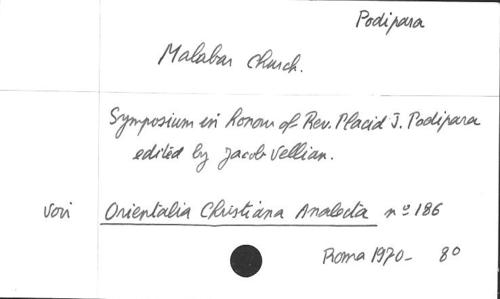 Podipara
Malabar Church.
Symposium in honour of Rev. Placid J. Podipara
edited by Jacob Vellian.
Vovi Orientalia Christiana Analecta nº 186
Roma 1970- 8º